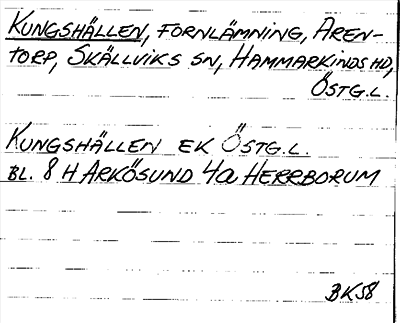 KUNGSHÄLLEN, FORNLÄMNING, AREN-
TORP, SKÄLLVIKS SN, HAMMARKINDS HD,
ÖSTG.L.
KUNGSHÄLLEN EK ÖSTG.L.
BL. 8 H ARKÖSUND 4a HERRBORUM
BK58